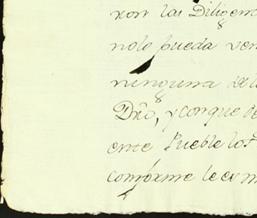 xon las Diligen
nole pueda ven
ninguna de l
Dr̃o, y conque de
ente Pueble los
conforme le com